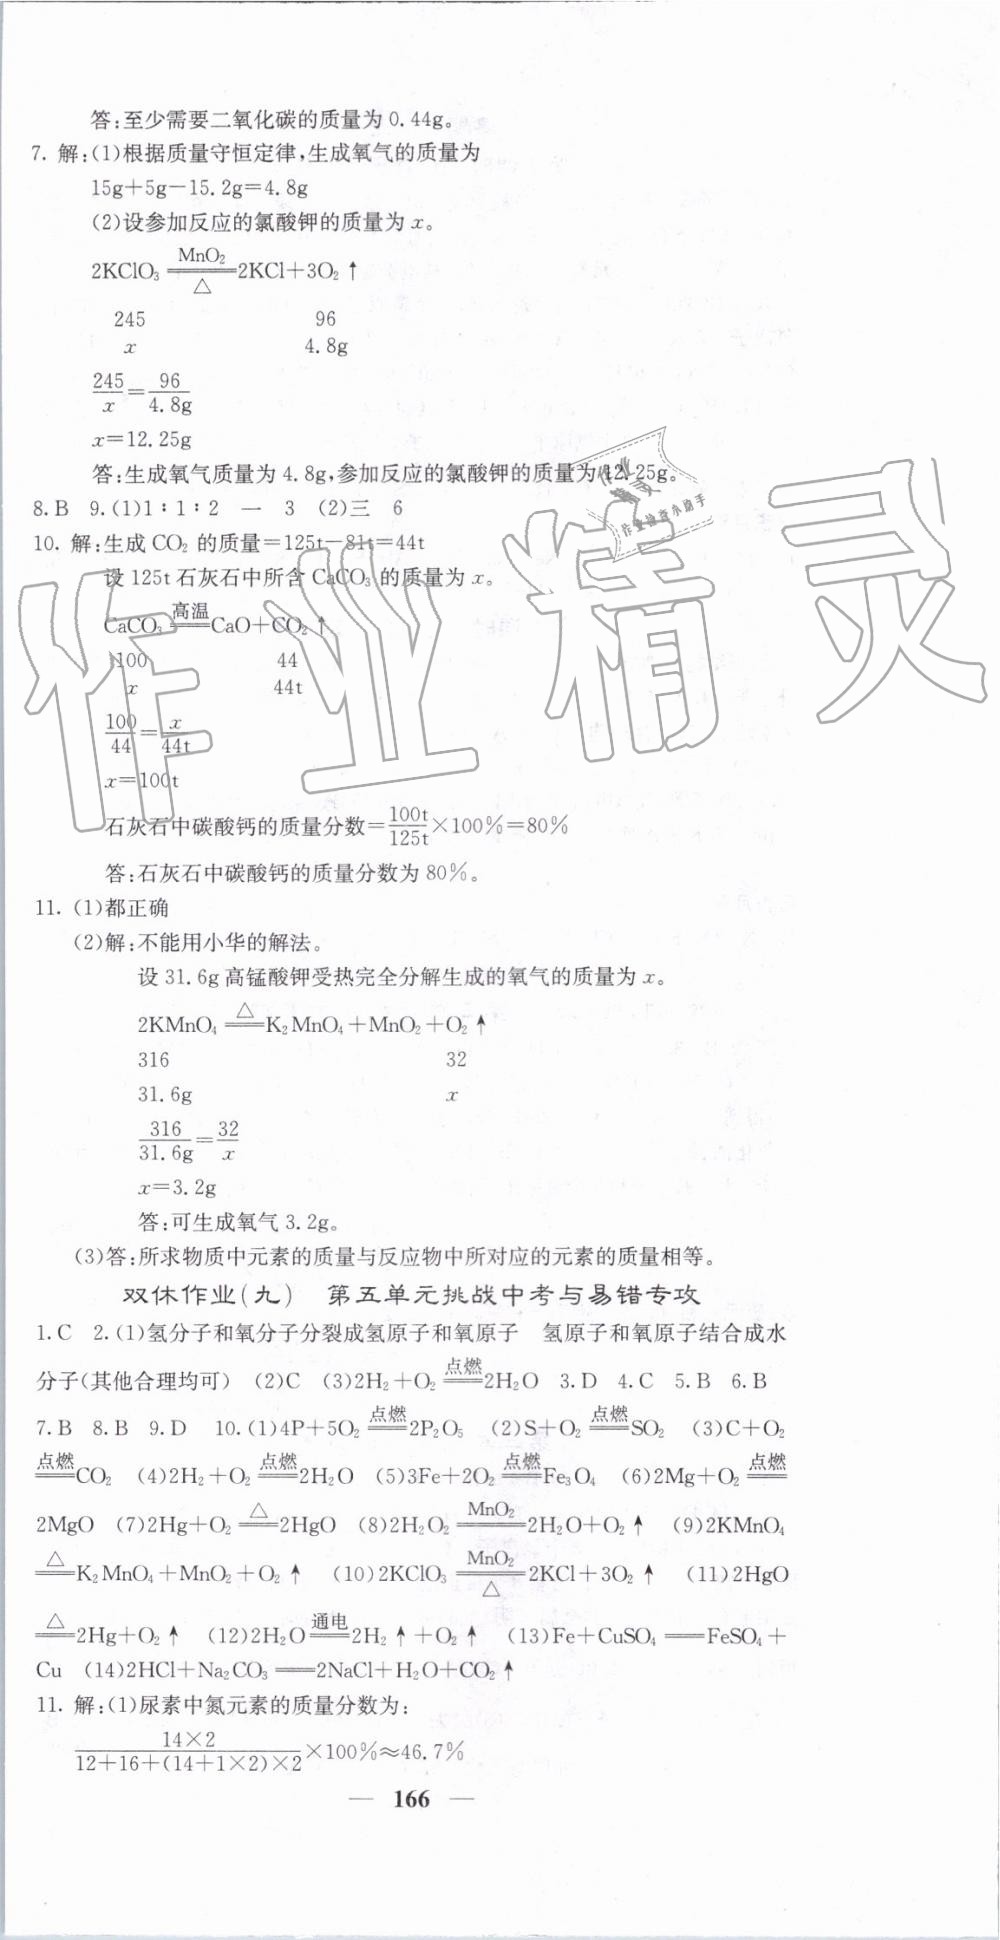 答:至少需要二氧化碳的质量为 0.44g。
7. 解:(1)根据质量守恒定律,生成氧气的质量为
15g+5g−15.2g=4.8g
(2)设参加反应的氯酸钾的质量为 x。
2KClO₃ MnO₂══△ 2KCl+3O₂↑
245 96
x 4.8g
245/x=96/4.8g
x=12.25g
答:生成氧气质量为 4.8g,参加反应的氯酸钾的质量为 12.25g。
8.B 9.(1)1∶1∶2 一 3 (2)三 6
10. 解:生成 CO₂ 的质量=125t−81t=44t
设 125t 石灰石中所含 CaCO₃ 的质量为 x。
CaCO₃ 高温══ CaO+CO₂↑
100 44
x 44t
100/44=x/44t
x=100t
石灰石中碳酸钙的质量分数=100t/125t×100%=80%
答:石灰石中碳酸钙的质量分数为 80%。
11. (1)都正确
(2)解:不能用小华的解法。
设 31.6g 高锰酸钾受热完全分解生成的氧气的质量为 x。
2KMnO₄ △══ K₂MnO₄+MnO₂+O₂↑
316 32
31.6g x
316/31.6g=32/x
x=3.2g
答:可生成氧气 3.2g。
(3)答:所求物质中元素的质量与反应物中所对应的元素的质量相等。
双休作业(九) 第五单元挑战中考与易错专攻
1.C 2.(1)氢分子和氧分子分裂成氢原子和氧原子 氢原子和氧原子结合成水
分子(其他合理均可) (2)C (3)2H₂+O₂ 点燃══ 2H₂O 3.D 4.C 5.B 6.B
7.B 8.B 9.D 10.(1)4P+5O₂ 点燃══ 2P₂O₅ (2)S+O₂ 点燃══ SO₂ (3)C+O₂
点燃══ CO₂ (4)2H₂+O₂ 点燃══ 2H₂O (5)3Fe+2O₂ 点燃══ Fe₃O₄ (6)2Mg+O₂ 点燃══
2MgO (7)2Hg+O₂ △══ 2HgO (8)2H₂O₂ MnO₂══ 2H₂O+O₂↑ (9)2KMnO₄
△══ K₂MnO₄+MnO₂+O₂↑ (10)2KClO₃ MnO₂══△ 2KCl+3O₂↑ (11)2HgO
△══ 2Hg+O₂↑ (12)2H₂O 通电══ 2H₂↑+O₂↑ (13)Fe+CuSO₄══FeSO₄+
Cu (14)2HCl+Na₂CO₃══2NaCl+H₂O+CO₂↑
11. 解:(1)尿素中氮元素的质量分数为:
14×2/12+16+(14+1×2)×2×100%≈46.7%
— 166 —
作业精灵
作业精灵
作业检查小助手